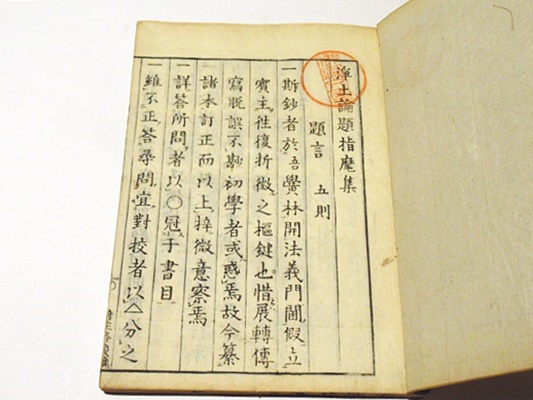 淨土論題指麾集
題言 五則
一斯鈔者於吾黌林開法義門閫假立
賓主往復折徵之樞鍵也惜展轉傳
寫脱誤不尠初學者或惑焉故今纂
諸本訂正而以上梓微意察焉
一詳答所問者以〇冠于書目
一雖不正答尋問宜對挍者以△分之